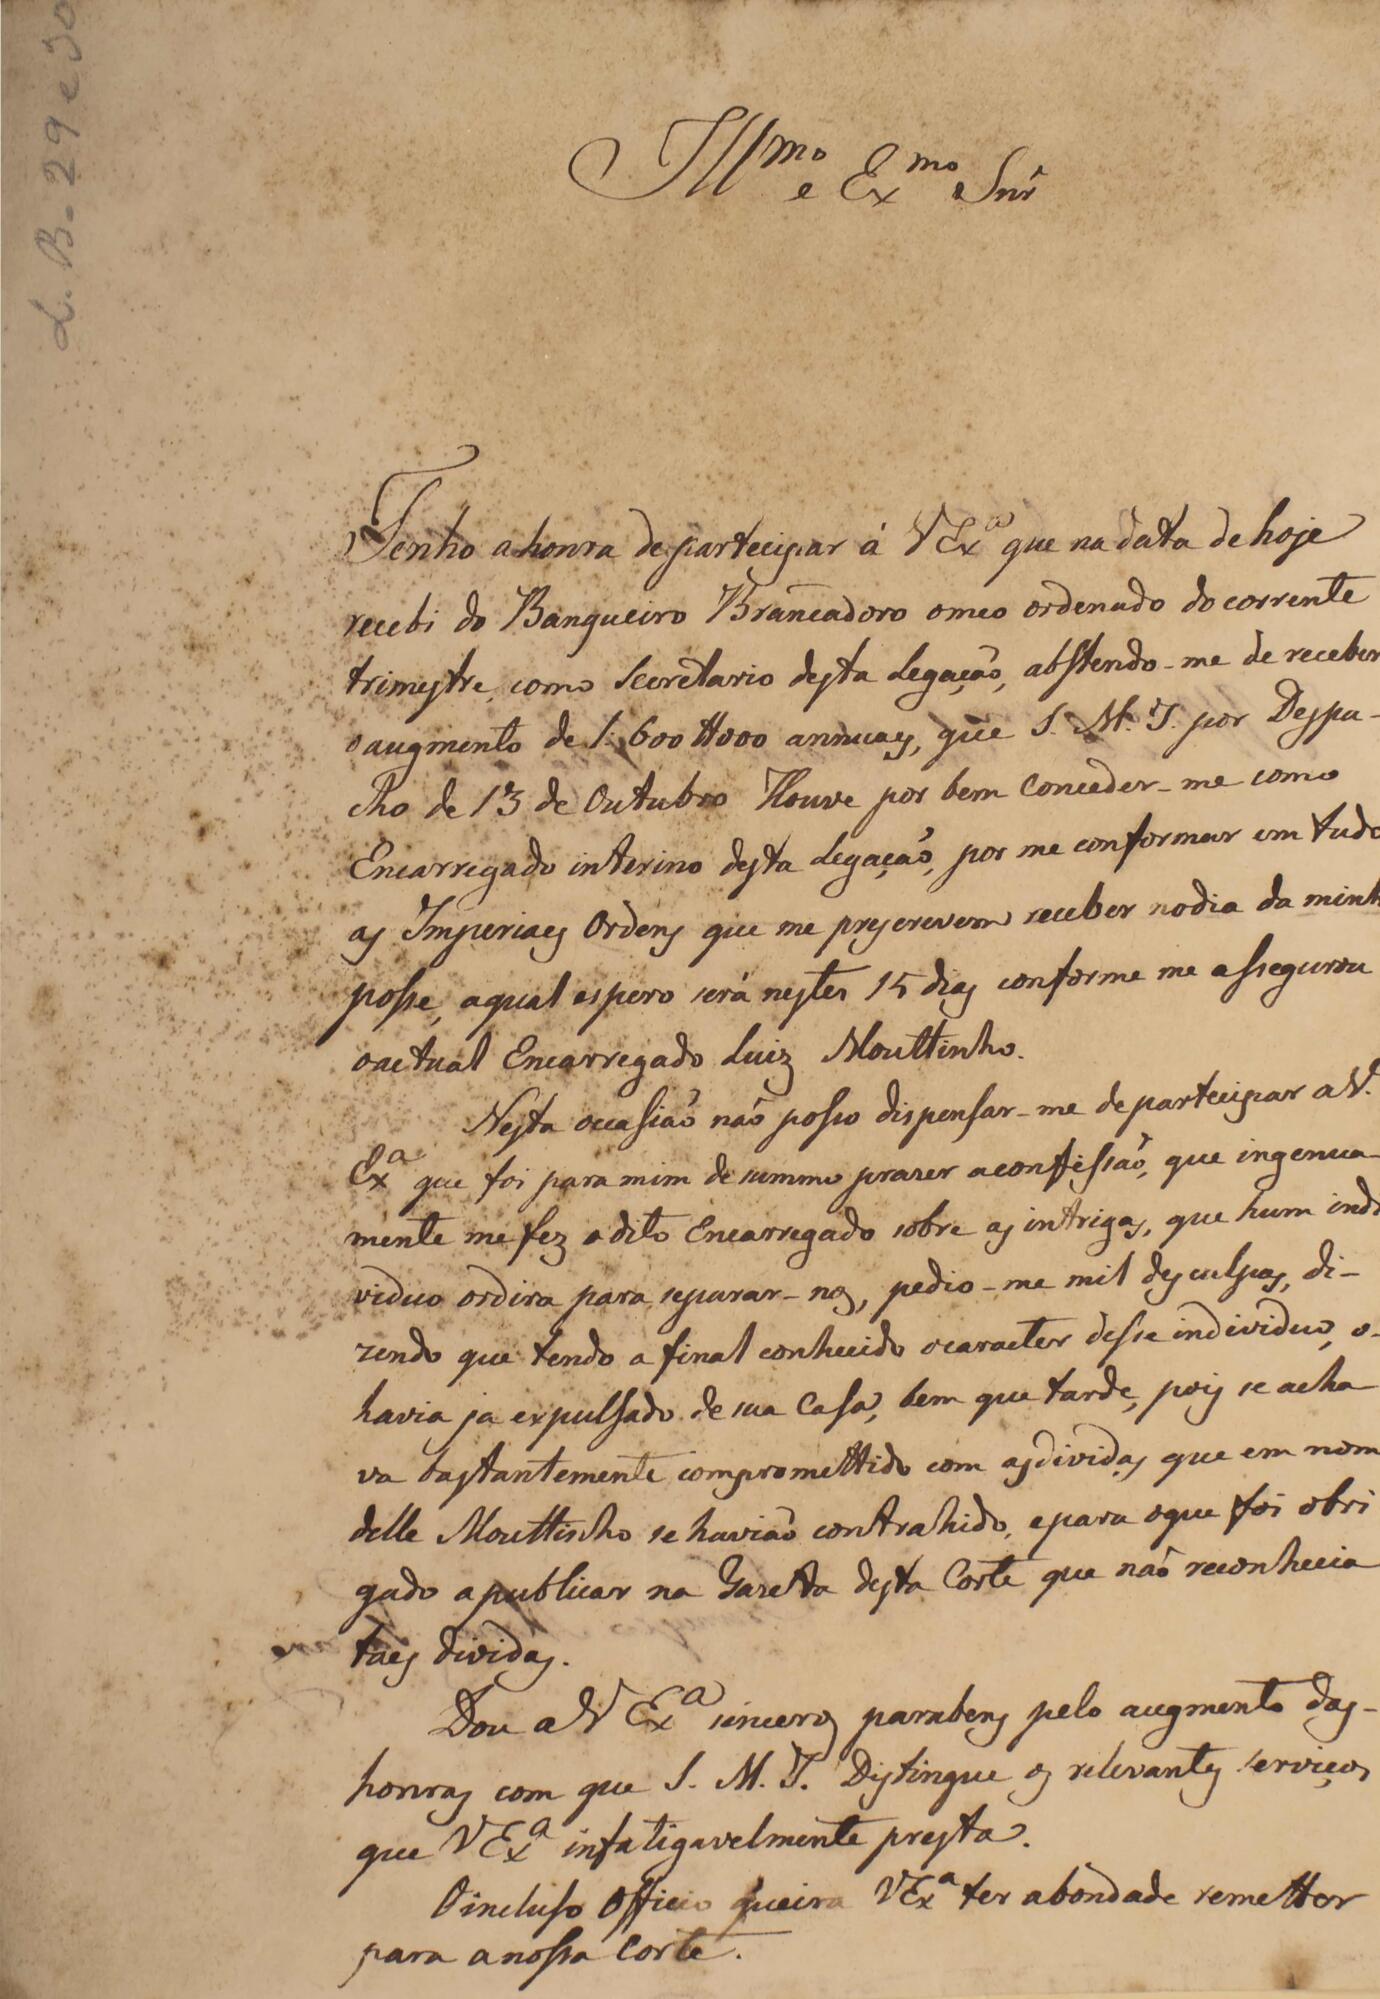 L. B. 29 e 30
Illmo e Exmo Snr
Tenho a honra de partecipar á V Exa que na data de hoje
recebi do Banqueiro Brancadoro o meo ordenado do corrente
trimestre, como Secretario desta Legação, abstendo-me de receber
o augmento de 1:600#000 annuaes, que S. M. I. por Despa-
cho de 13 de Outubro Houve por bem Conceder-me como
Encarregado interino desta Legação, por me conformar em tudo
as Imperiaes Ordens que me prescrevem receber no dia da minh
posse, a qual espero será nestes 15 dias conforme me assegurou
o actual Encarregado Luiz Mouttinho.
Nesta occasião não posso dispensar-me de partecipar a V.
Exa que foi para mim de summo prazer a confissão, que ingenua-
mente me fez o dito Encarregado sobre as intrigas, que hum indi
viduo ordira para separar-nos, pedio-me mil desculpas, di-
zendo que tendo a final conhecido o caracter desse individuo, o-
havia ja expulsado de sua Casa, bem que tarde, pois se acha
va bastantemente compromettido com as dividas que em nom
delle Mouttinho se havião contrahido, e para o que foi obri
gado a publicar na Gazetta desta Corte que não reconhecia
taes dividas.
Dou a V Exa sinceros parabens pelo augmento das-
honras com que S. M. I. Distingue os relevantes serviços
que V Exa infatigavelmente presta.
O incluso Officio queira V Exa ter a bondade remetter
para a nossa Corte.